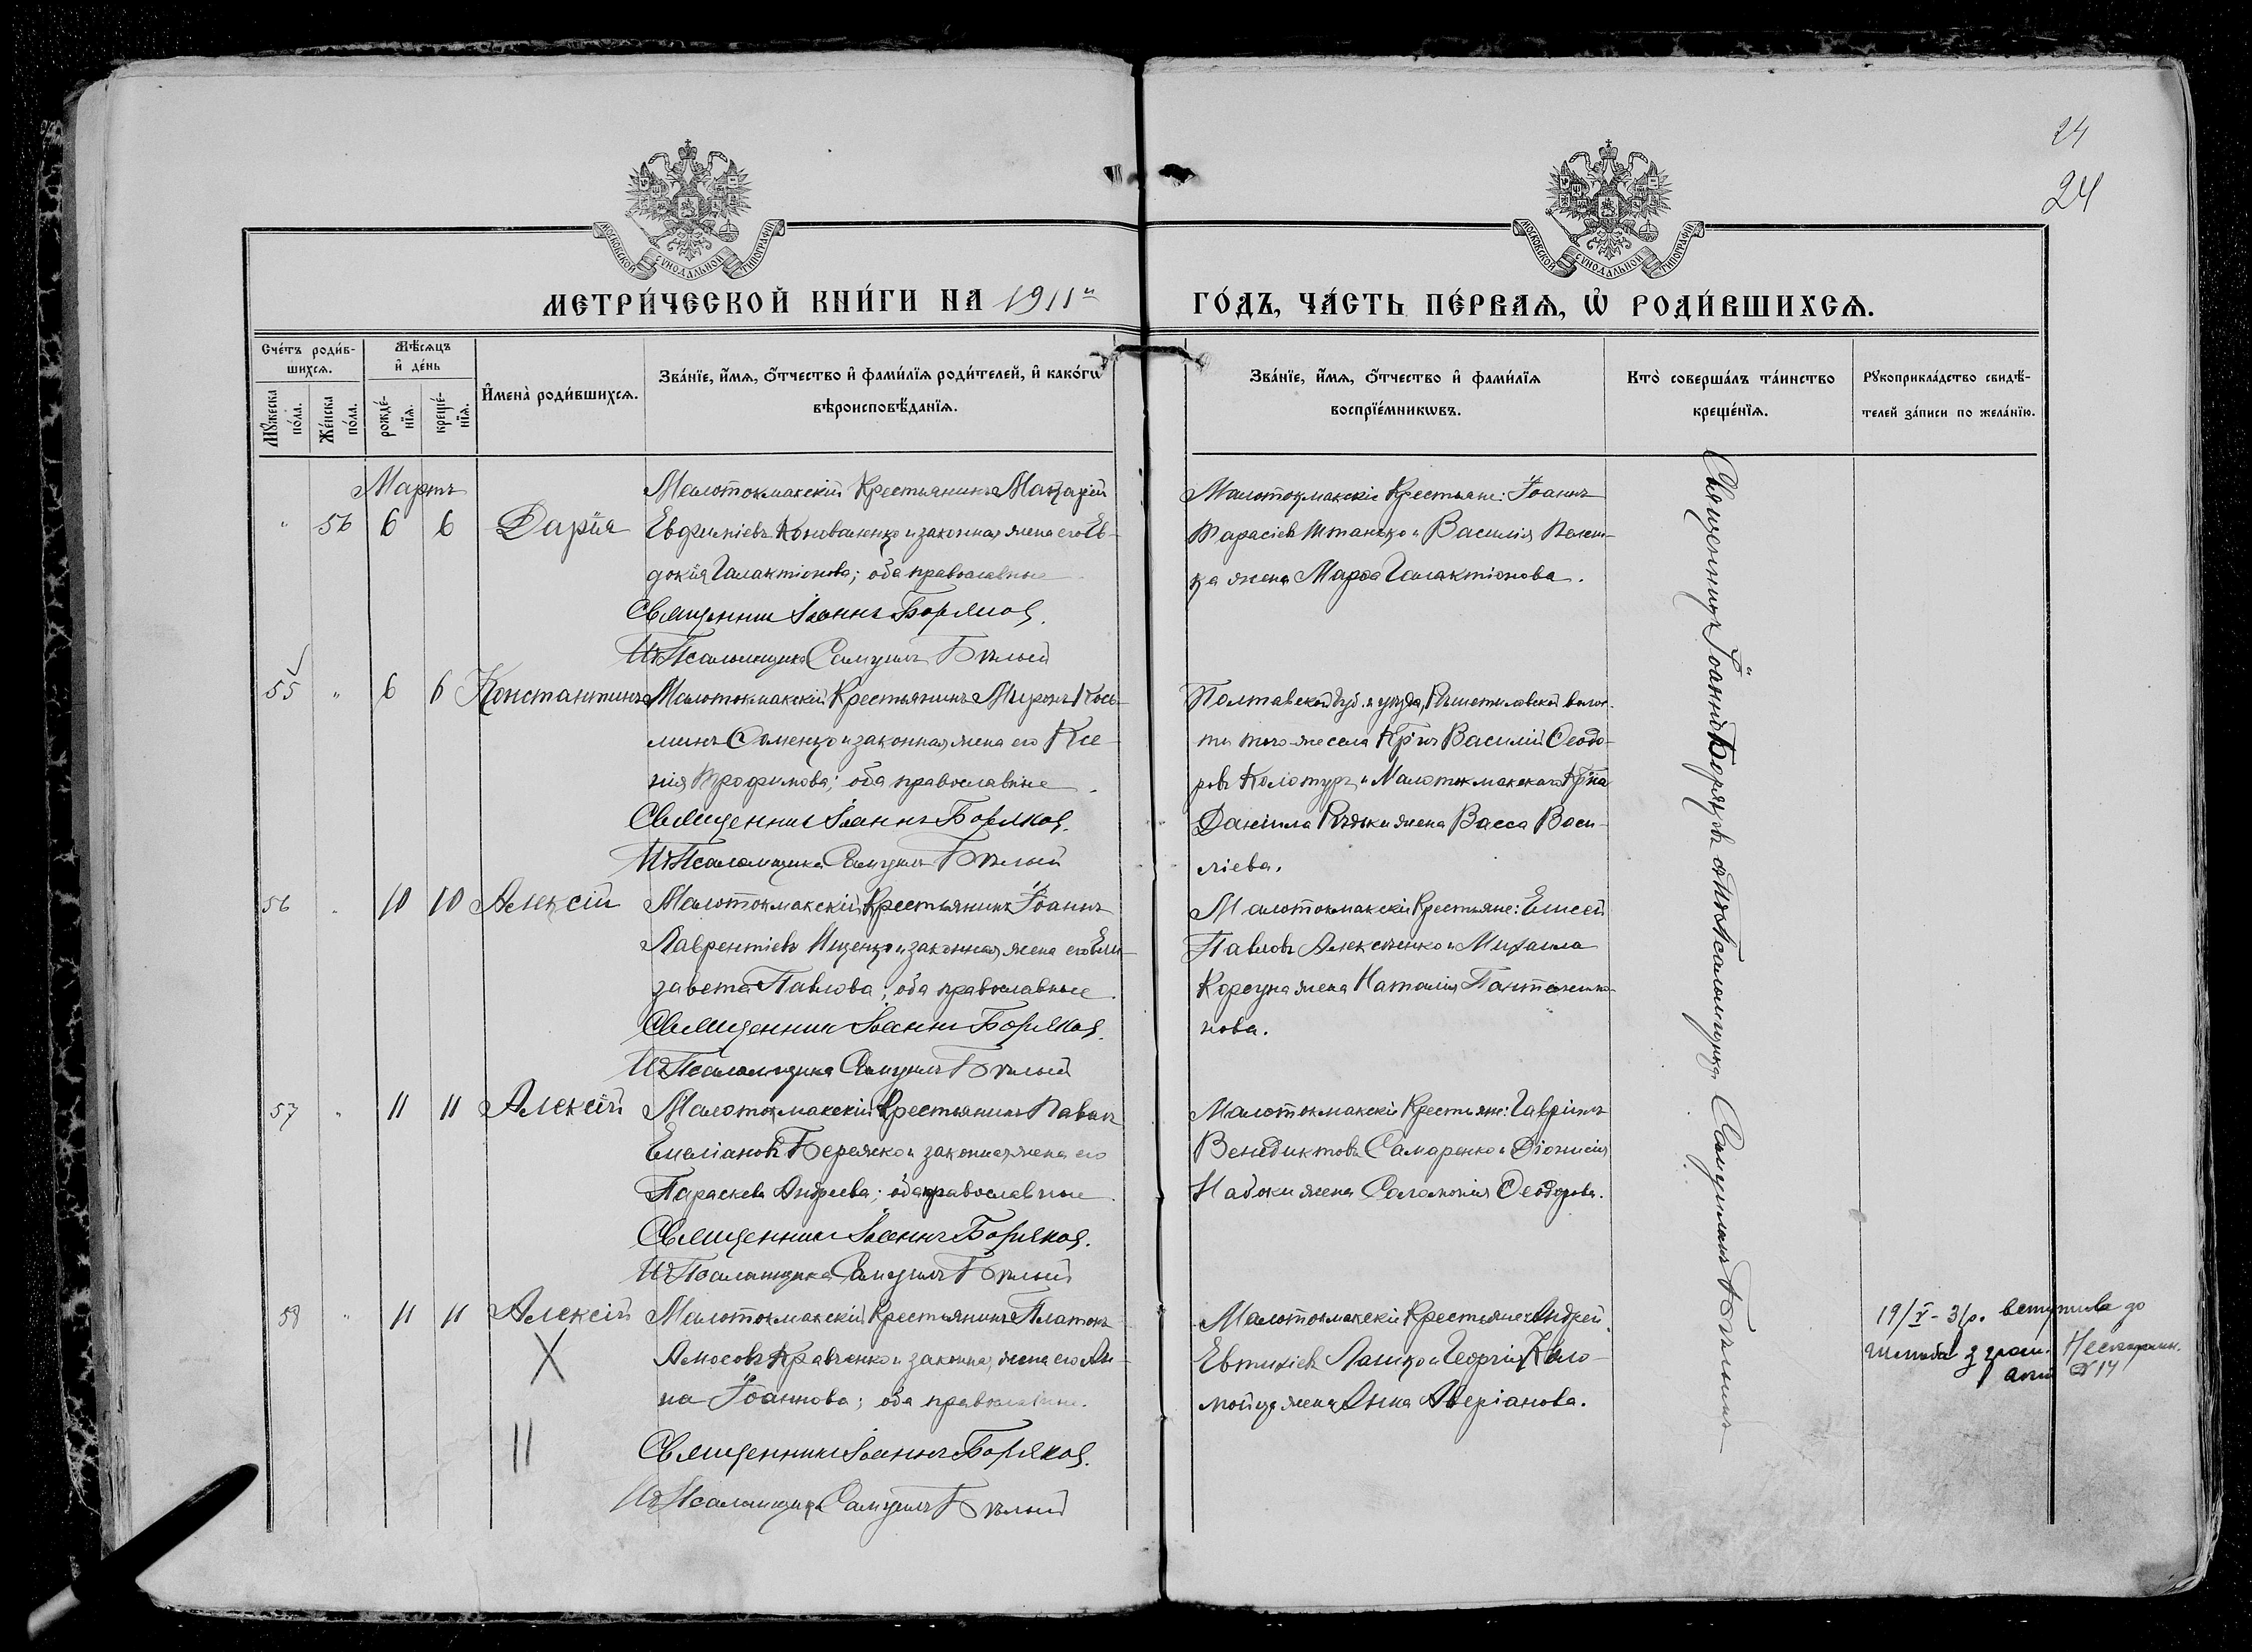 24
24
МОСКОВСКОЙ СѴНОДАЛЬНОЙ ТИПОГРАФІИ
МОСКОВСКОЙ СѴНОДАЛЬНОЙ ТИПОГРАФІИ
МЕТРИ́ЧЕСКОЙ КНИ́ГИ НА 1911й
ГО́ДЪ, ЧА́СТЬ ПЕ́РВАѦ, Ѡ҆ РОДИ́ВШИХСѦ.
Сче́тъ роди́в-
шихсѧ.
Мѣ́сѧцъ
и҆ де́нь
Мꙋ́жеска
по́ла.
Же́нска
по́ла.
рожде́-
нїѧ.
креще́-
нїѧ.
И҆мена̀ роди́вшихсѧ.
Зва́нїе, и҆́мѧ, ѻ҆́тчество и҆ фами́лїѧ роди́телей, и҆ како́гѡ
вѣроисповѣ́данїѧ.
Зва́нїе, и҆́мѧ, ѻ҆́тчество и҆ фами́лїѧ
воспрїе́мникѡвъ.
Кто̀ соверша́лъ та́инство
креще́нїѧ.
Рꙋкоприкла́дство свидѣ́-
телей за́писи по жела́нїю.
Мартъ
" 56 6 6 Дарія
Малотокмакскій Крестьянинъ Макарій
Евфиміевъ Коноваленко и законная жена его Ев-
докія Галактіонова; оба православные.
Священникъ Іоаннъ Боряковъ.
И. д. Псаломщика Самуилъ Бѣлый
Малотокмакскіе Крестьяне: Іоаннъ
Тарасіевъ Штанько и Василія
ка жена Марфа Галактіонова.
55 " 6 6 Константинъ
Малотокмакскій Крестьянинъ Миронъ Кось-
минъ Соменко и законная жена его Ксе-
нія Трофимова; оба православные.
Священникъ Іоаннъ Боряковъ.
И. д. Псаломщика Самуилъ Бѣлый
Полтавской губ. и уѣзда, Рѣшетиловской волос-
ти того-же села Кр-нъ Василій Ѳеодо-
ровъ Колотуръ и Малотокмакскаго Кр-на
Даніила Рѣдьки жена Васса Васи-
ліева.
56 " 10 10 Алексій
Малотокмакскій Крестьянинъ Іоаннъ
Лаврентіевъ Ищенко и законная жена его Ели-
завета Павлова; оба православные.
Священникъ Іоаннъ Боряковъ.
И. д. Псаломщика Самуилъ Бѣлый
Малотокмакскіе Крестьяне: Елисей
Павловъ Алексѣенко и Михаила
Корсуна жена Наталія Пантелеимо-
нова.
57 " 11 11 Алексій
Малотокмакскій Крестьянинъ Павелъ
Емеліановъ Бережко и законная жена его
Параскева Андреева; оба православные.
Священникъ Іоаннъ Боряковъ.
И. д. Псаломщика Самуилъ Бѣлый
Малотокмакскіе Крестьяне: Гавріилъ
Венедиктовъ Самаренко и Діонисія
Набоки жена Саломонія Ѳеодорова.
58 " 11 11 Алексій
Малотокмакскій Крестьянинъ Платонъ
Амосовъ Кравченко и законная жена его Ан-
на Іоаннова; оба православные.
Священникъ Іоаннъ Боряковъ.
И. д. Псаломщика Самуилъ Бѣлый
Малотокмакскіе Крестьяне: Андрей
Евтихіевъ Лашко и Георгія Коло-
мойца жена Анна Аверіанова.
Священникъ Іоаннъ Боряковъ съ И. д. Псаломщика Самуиломъ Бѣлымъ
19/V-31р. вступила до
шлюба з гром.